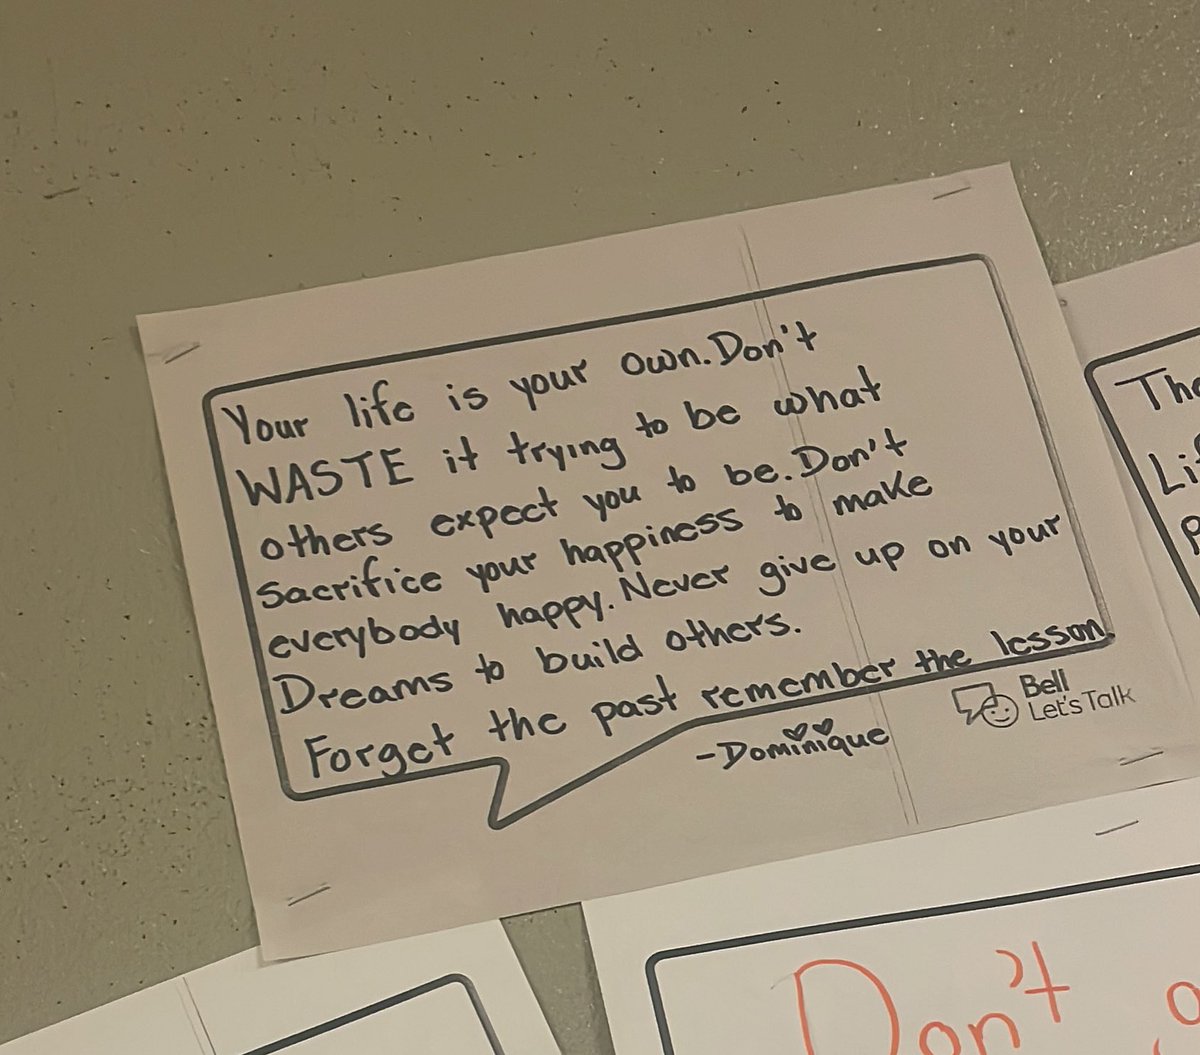 Your life is your own. Don't
WASTE it trying to be what
others expect you to be. Don't
sacrifice your happiness to make
everybody happy. Never give up on your
Dreams to build others.
Forget the past remember the lesson.
-Dominique
Bell
Let's Talk
Don't